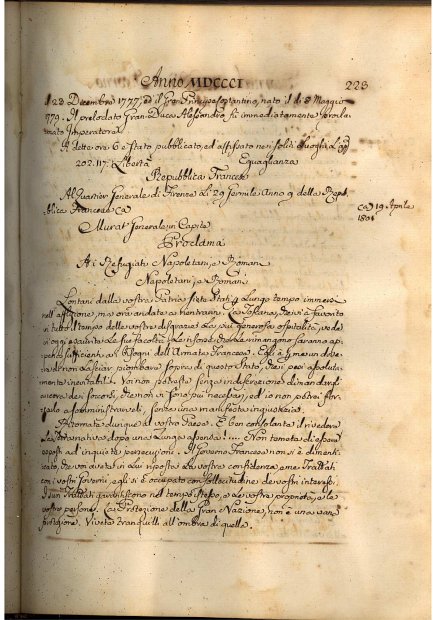 Anno MDCCCI
223
il 23 Decembre 1777, ed il Gran Principe Costantino, nato il dì 8 Maggio
1779. Il prelodato Gran-Duca Alessandro fù immediatamente procla
mato Imperatore
Il dette ora 6 e stato pubblicato, ed affissato nei soliti Luoghi
202. 117. Libertà Eguaglianza
Repubblica Francese
Al Quartier Generale di Firenze Li 29 Germile Anno 9 della Repub
blica Francese
19 Aprile
1801
Murat Generale in Capite
Proclama
Ai Refugiati Napoletani, e Romani
Napoletani, e Romani
Lontani dalla vostra Patria siete stati Lungo tempo immersi
nell'afflizione, ma ora andate a rientrarvi. La Toscana, che vi à favorito
in tutto l'tempo delle vostre disgrazie La più generosa ospitalità, vede
in oggi esaurite Le sue facoltà. Le risorse, che Le rimangono saranno ap
pena sufficienti ai Bisogni dell'Armata Francese. Egli è per me un dove
re di non Lasciar piombare sopra di questo Stato, che i pesi assoluta
mente inevitabili. Voi non potreste senza indiscrezione dimandargli
ancora dei soccorsi, che non vi sono più necessarj, ed io non potrei for
zarlo a somministrarveli, senza una manifesta ingiustizia.
Ritornate dunque al vostro Paese. È ben consolante il rivedere
La sua Patria dopo una Lunga assenza!.... Non temete di essere
esposti ad inquiete persecuzioni. Il Governo Francese non si è dimenti
cato, che voi avete in Lui riposta La vostra confidenza, e nei Trattati
con i vostri Governi, egli si è occupato con sollecitudine dei vostri interessi.
I suoi Trattati garantiscono nel tempo stesso, e Le vostre proprietà, e le
vostre persone. La Protezione della Gran Nazione, non è una vana
protezione. Vivete tranquilli all'ombra di quella.